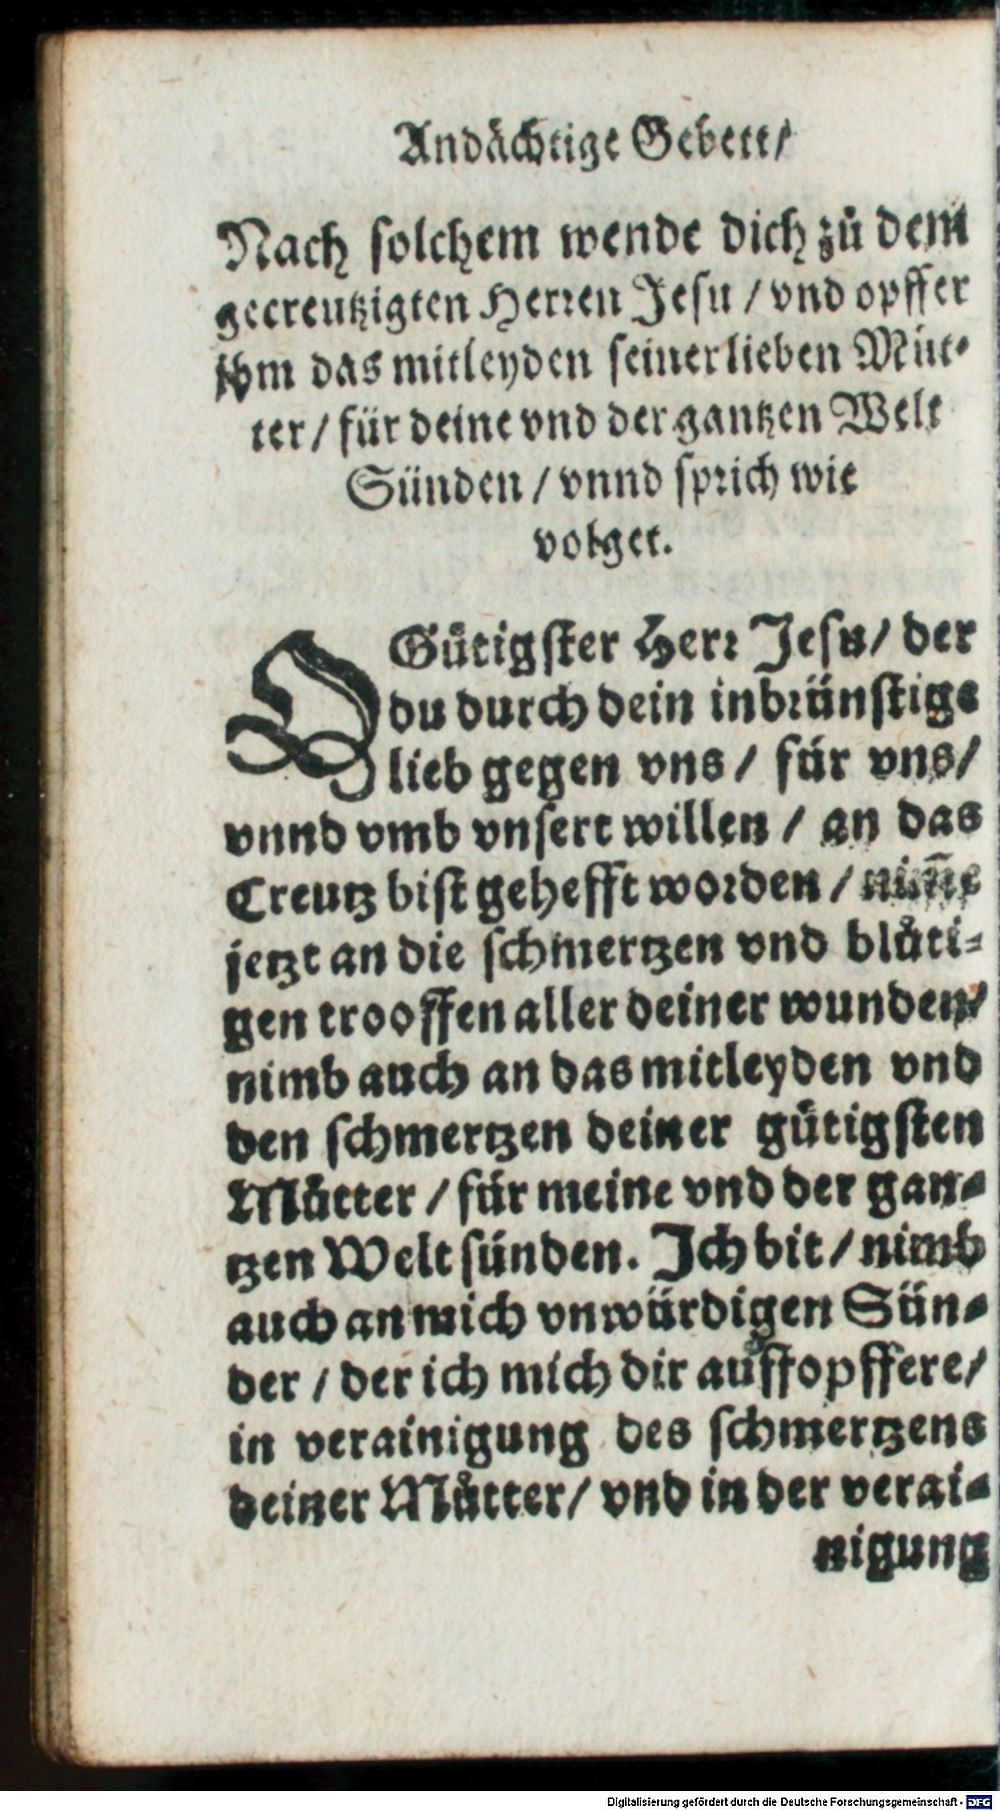 Andächtige Gebett/
Nach solchem wende dich zů dem
gecreutzigten Herren Jesu / vnd opffer
jhm das mitleyden seiner lieben Můt-
ter / für deine vnd der gantzen Welt
Sünden / vnnd sprich wie
volget.
O Gütigster Herr Jesu / der
du durch dein inbrünstige
lieb gegen vns / für vns /
vnnd vmb vnsert willen / an das
Creutz bist gehefft worden /
jetzt an die schmertzen vnd blůti-
gen trooffen aller deiner wunden /
nimb auch an das mitleyden vnd
den schmertzen deiner gütigsten
Můtter / für meine vnd der gan-
tzen Welt sünden. Ich bit / nimb
auch an mich vnwürdigen Sün-
der / der ich mich dir auffopffere /
in verainigung des schmertzens
deiner Můtter / vnd in der verai-
nigung
Digitalisierung gefördert durch die Deutsche Forschungsgemeinschaft - DFG